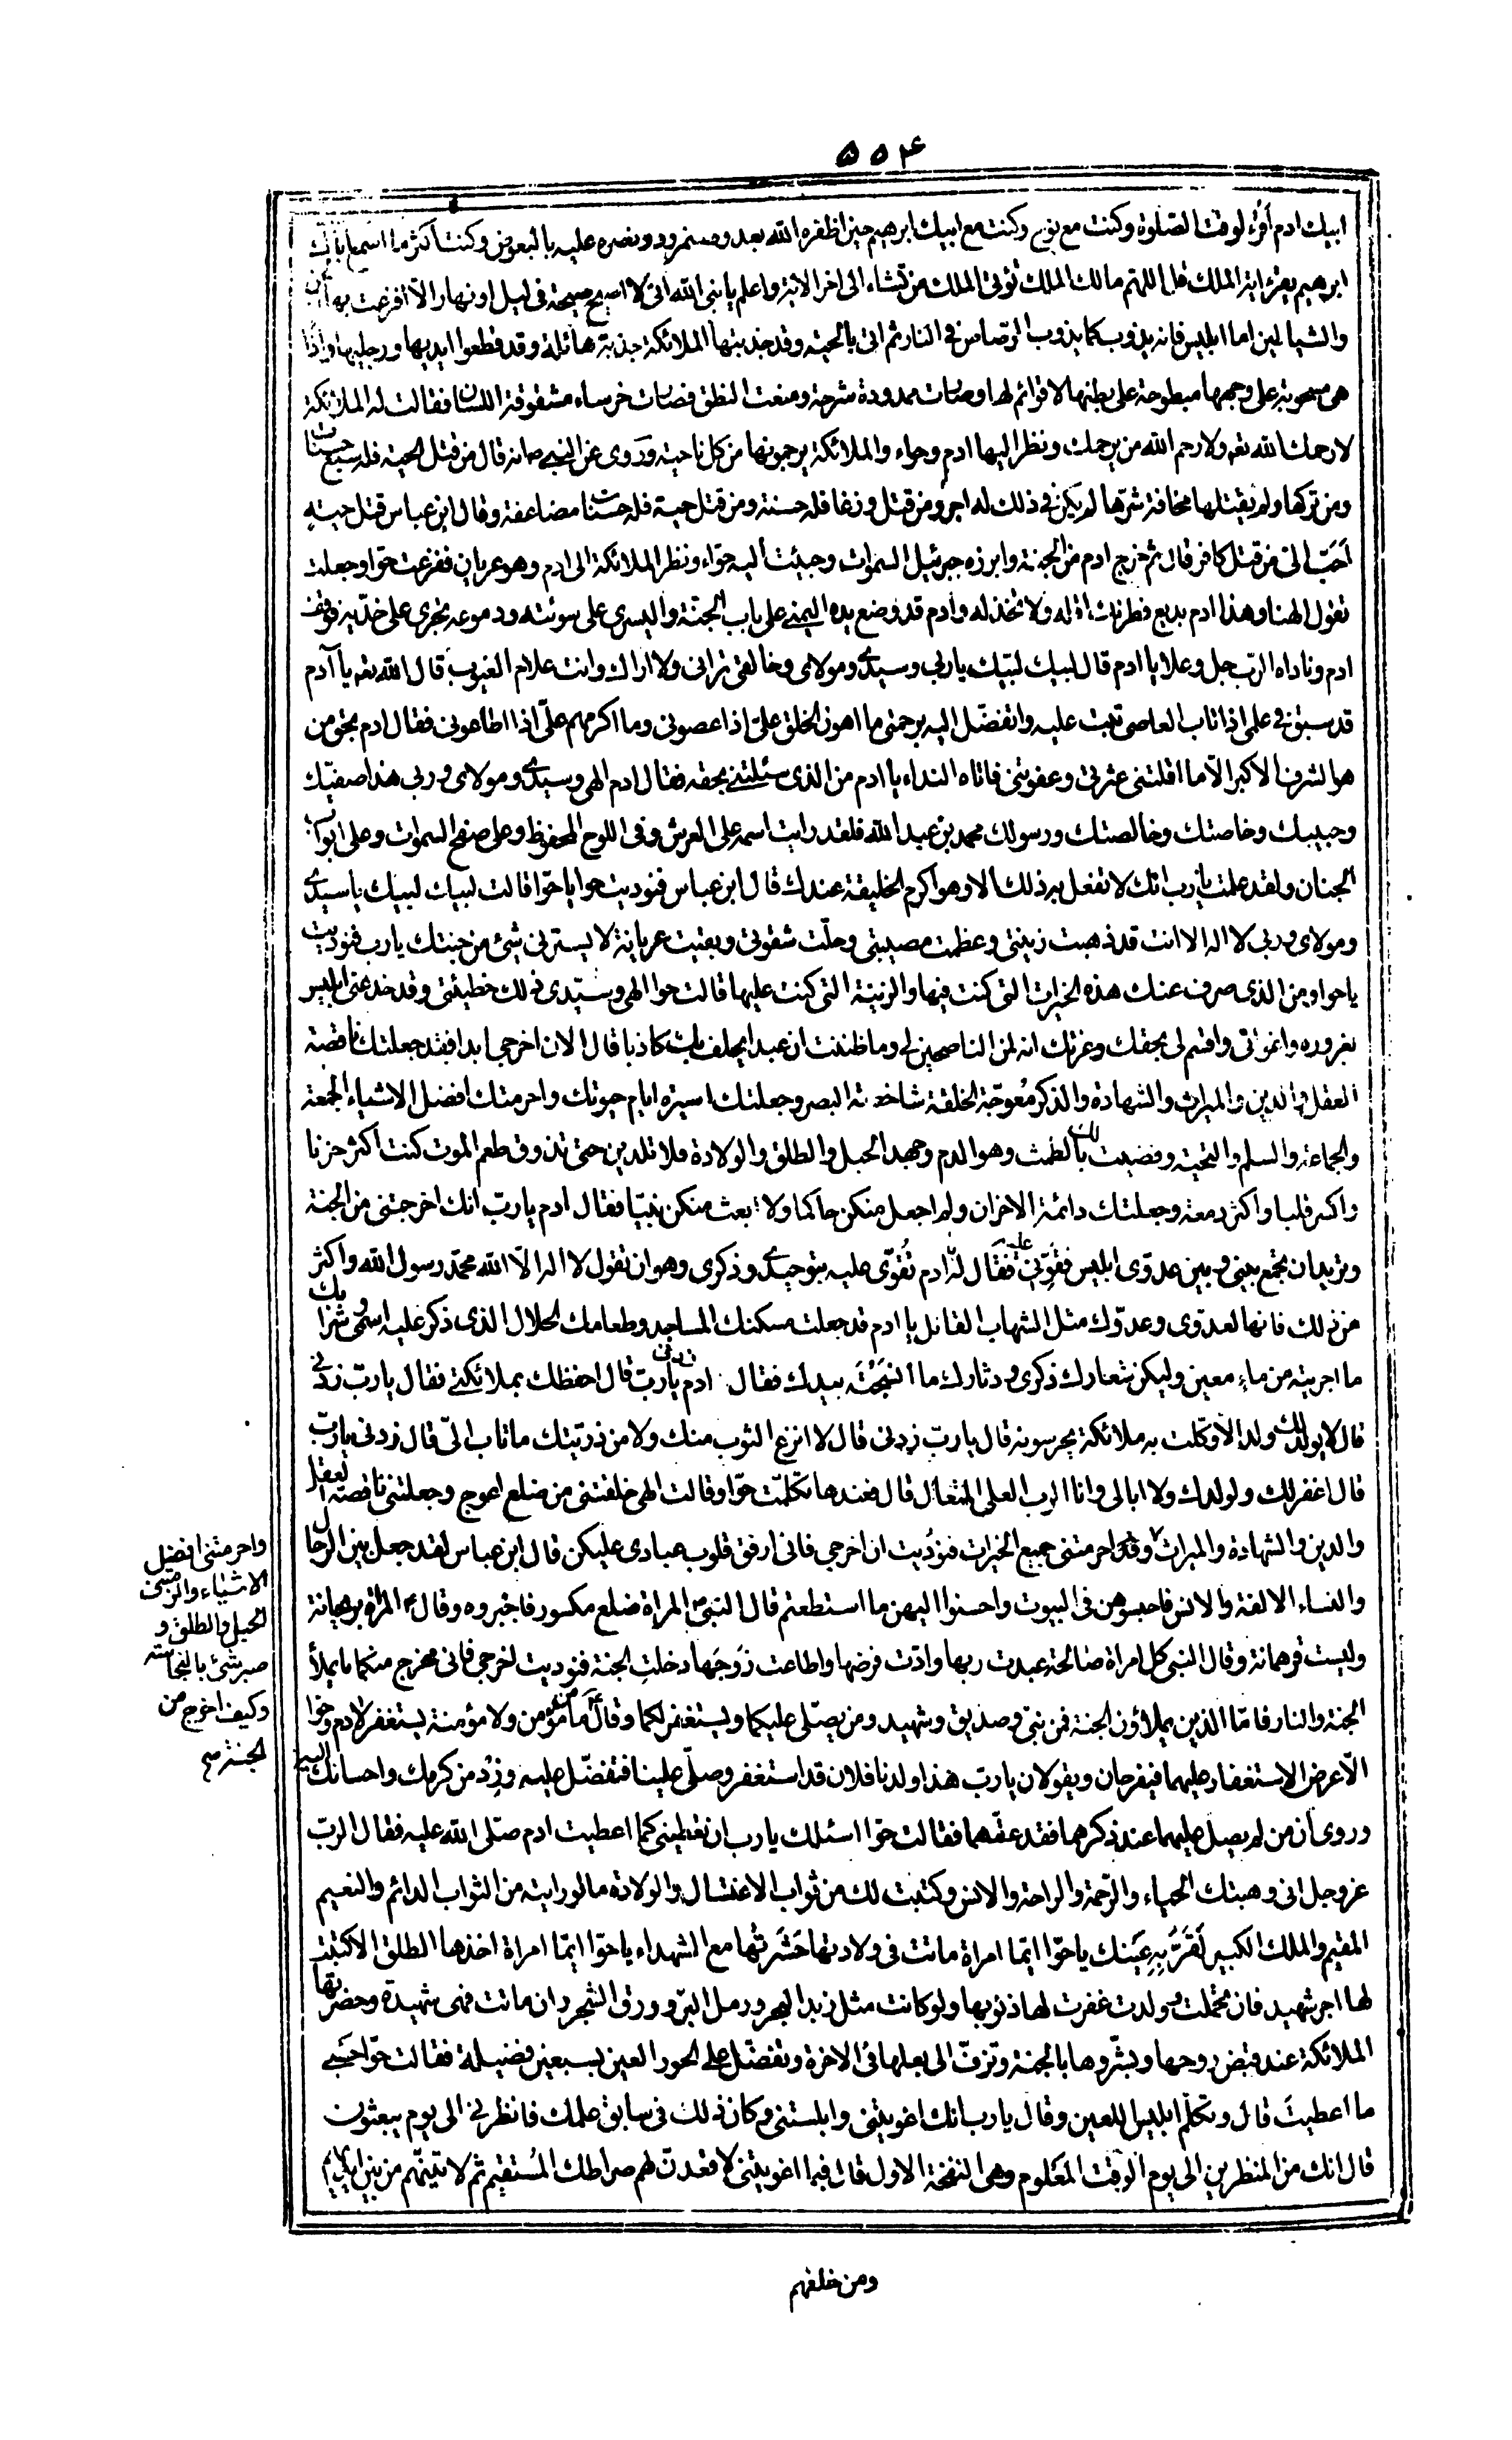 ۵۵۴
ابيك ادم اقرء لوقت الصّلوة وكنت مع نوح وكنت مع ابيك ابرهيم حين اظفره الله بعدوه نمرود ونصره عليه بالبعوض وكنت اكثر ما اسمع اباك
ابرهيم يقرء اية الملك قل اللهم مالك الملك تؤتى الملك من تشاء الى اخر الاية واعلم يا نبى الله انى لا اصيح صيحة فى ليل او نهار الا افزعت بها الجن
والشياطين اما ابليس فانه يذوب كما يذوب الرّصاص فى النار ثم اتى بالحيّة وقد جذبتها الملائكة جذبة هائلة وقد قطعوا ايديها ورجليها واذا
هى مسحوبة على وجهها مبطوحة على بطنها لا قوائم لها وصارت ممدودة شرحة ومنعت النطق فصارت خرساء مشقوقة اللسان فقالت له الملائكة
لا رحمك الله تعه ولا رحم الله من يرحمك ونظر اليها ادم وحواء والملائكة يرجمونها من كل ناحية وروى عن النبى ص انه قال من قتل الحية فله سبع حسنات
ومن تركها ولم يقتلها مخافة شرّها لم يكن فى ذلك له اجر ومن قتل وزغا فله حسنة ومن قتل حية فله حسنات مضاعفة وقال ابن عباس قتل حيته
احَبّ الىّ من قتل كافر قال ثم خرج ادم من الجنة وابرزه جبرئيل السموات وجيئت اليه حوّاء ونظر الملائكة الى ادم وهو عريان ففزعت حوّا وجعلت
تقول الهنا وهذا ادم بديع فطرتك اقله ولا تخذله وادم قد وضع يده اليمنى على باب الجنّة واليسرى على سوئته ودموعه تجرى على خدّيه فوقف
ادم وناداه الرب جل وعلا يا ادم قال لبيك لبّيك يا ربى وسيدى ومولاى وخالقى ترانى ولا اراك وانت علام الغيوب قال الله تعه يا آدم
قد سبق فى علمى اذا تاب العاصى تبت عليه واتفضّل اليه برحمتى ما اهون الخلق علىّ اذا عصونى وما اكرمهم علىّ اذا اطاعونى فقال ادم بحق من
هو الشرف الاكبر الاّ ما اقلتنى عثرتى وعفوتنى فاتاه النداء يا ادم من الذى سئلتنى بحقه فقال ادم الهى وسيدى ومولاى وربى هذا صفيّك
وحبيبك وخاصتك وخالصتك ورسولك محمد بن عبد الله فلقد رايت اسمه على العرش وفى اللوح المحفوظ وعلى صفح السموات وعلى ابواب
الجنان ولقد علمت يا رب انك لا تفعل به ذلك الا وهو اكرم الخليقة عندك قال ابن عباس فنوديت حوا يا حوّا قالت لبيك لبيك يا سيدى
ومولاى وربى لا اله الا انت قد ذهبت زينتى وعظمت مصيبتى وحلّت شقوتى وبقيت عريانة لا يسترنى شئ من جنتك يا رب فنوديت
يا حوا ومن الذى صرف عنك هذه الخيرات التى كنت فيها والزينة التى كنت عليها قالت حوا الهى وسيّدى ذلك خطيئتى وقد خدعنى ابليس
بغروره واغوانى واقسم لى بحقك وعزتك انه لمن الناصحين لى وما ظننت ان عبدا يحلف بك كاذبا قال الان اخرجى ابدا فقد جعلتك ناقصة
العقل والدين والميراث والشهادة والذكر مُعوجّة الخلقة شاخصة البصر وجعلتك اسيرة ايام حيوتك واحرمتك افضل الاشياء الجمعة
والجماعة والسلم والتحية وقضيت لك بالطمث وهو الدم وجهد الحبل والطلق والولادة فلا تلدين حتى تذوق طعم الموت كنت اكثر حزنا
واكسر قلبا واكثر دمعة وجعلتك دائمة الاحزان ولم اجعل منكن حاكما ولا ابعث منكن نبيّا فقال ادم يا ربّ انك اخرجتنى من الجنة
وتريد ان تجمع بينى وبين عدوّى ابليس فقوّنى عليه فقال له يا ادم تُقوّى عليه بتوحيدى وذكرى وهو ان تقول لا اله الاّ الله محمّد رسول الله واكثر
من ذلك فانها لعدوّى وعدوّك مثل الشهاب القاتل يا ادم قد جعلت مسكنك المساجد وطعامك الحلال الذى ذكر عليه اسمى وشرابك
ما اجريته من ماء معين وليكن شعارك ذكرى ودثارك ما انسَجْتَه بيدك فقال ادم يا ربّ زدنى قال احفظك بملائكتى فقال يا ربّ زدنى
قال لا يولد لك ولد الا وكلت به ملائكة يحرسونه قال يا ربّ زدنى قال لا انزع التوب منك ولا من ذريّتك ما تاب الىّ قال زدنى يا ربّ
قال اغفر لك ولولدك ولا ابالى وانا الرب العلى المتعال قال فعندها تكلمّت حوّا وقالت الهى خلقتنى من ضلع اعوج وجعلتنى ناقصة العقل
والدين والشهادة والميراث وقد احرمتنى جميع الخيرات فنوديت ان اخرجى فانى ارفق قلوب عبادى عليكن قال ابن عباس لقد جعل بين الرجال
والنساء الالفة والانس فاحبسوهن فى البيوت واحسنوا اليهن ما استطعتم قال النبى ص المراة ضلع مكسور فاجبروه وقال ص المراة ريحانة
وليست قهرمانة وقال النبى كل امراة صالحة عبدت ربها وادّت فرضها واطاعت زَوجَها دخلت الجنة فنوديت اخرجى فانى مخرج منكما ما يملأ
الجنة والنار فامّا الذين يملاؤن الجنة فمن نبىّ وصديق وشهيد ومن يصّلى عليكما ويستغفر لكما وقال ص ما من مؤمن ولا مؤمنة يستغفر لادم وحوا
الاّ عرض الاستغفار عليهما فيفرحان ويقولان يا ربّ هذا ولدنا فلان قد استغفر وصلّى علينا فتفضّل عليه وزِدْ من كرمك واحسانك اليه
وروى ان من لم يصل عليهما عند ذكرهما فقد عقّهما فقالت حوّا اسئلك يا رب ان تعطينى كما اعطيت ادم صلّى الله عليه فقال الربّ
عز وجل انى وهبتك الحياء والرّحمة والراحة والانس وكتبت لك من ثواب الاغتسال والولادة ما لو رايته من الثواب الدائم والنعيم
المقيم والملك الكبير لَقَرّتْ بِهِ عَينك يا حوّا ايمّا امراة ماتت فى ولادتها حَشَرتُها مع الشهداء يا حوّا ايمّا امراة اخذها الطلق الا كتبت
لها اجر شهيد فان تحملت وولدت غفرت لها ذنوبها ولو كانت مثل زبد البحر ورمل البرّ وورق الشجر وان ماتت فهى شهيدة وحضرتها
الملائكة عند قبض روحها وبشّروها بالجنة وتزفّ الى بعلها فى الاخرة وتفضّل على الحور العين بسبعين فضيلة فقالت حوّا حَسْبى
ما اعطيتَ قال وتكلّم ابليس اللعين وقال يا رب انك اغويتنى وابلستنى وكان ذلك فى سابق علمك فانظرنى الى يوم يبعثون
قال انك من المنظرين الى يوم الوقت المعلوم وهى النفخة الاول قال فبما اغويتنى لاقعدنّ لهم صراطك المُستقيم ثم لاتينّهم من بين ايديهم
واحرمتنى افضل
الاشياء والزمتنى
الحبل والطلق و
صبرتنى بالنجاسة
وكيف اخرج من
الجنة صح
ومن خلفهم